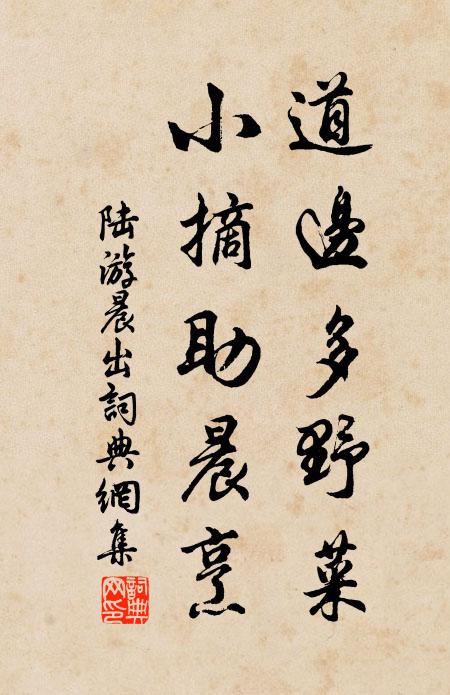 道邊多野菜
小摘助晨烹
陆游晨出詞典網集
詞典网印